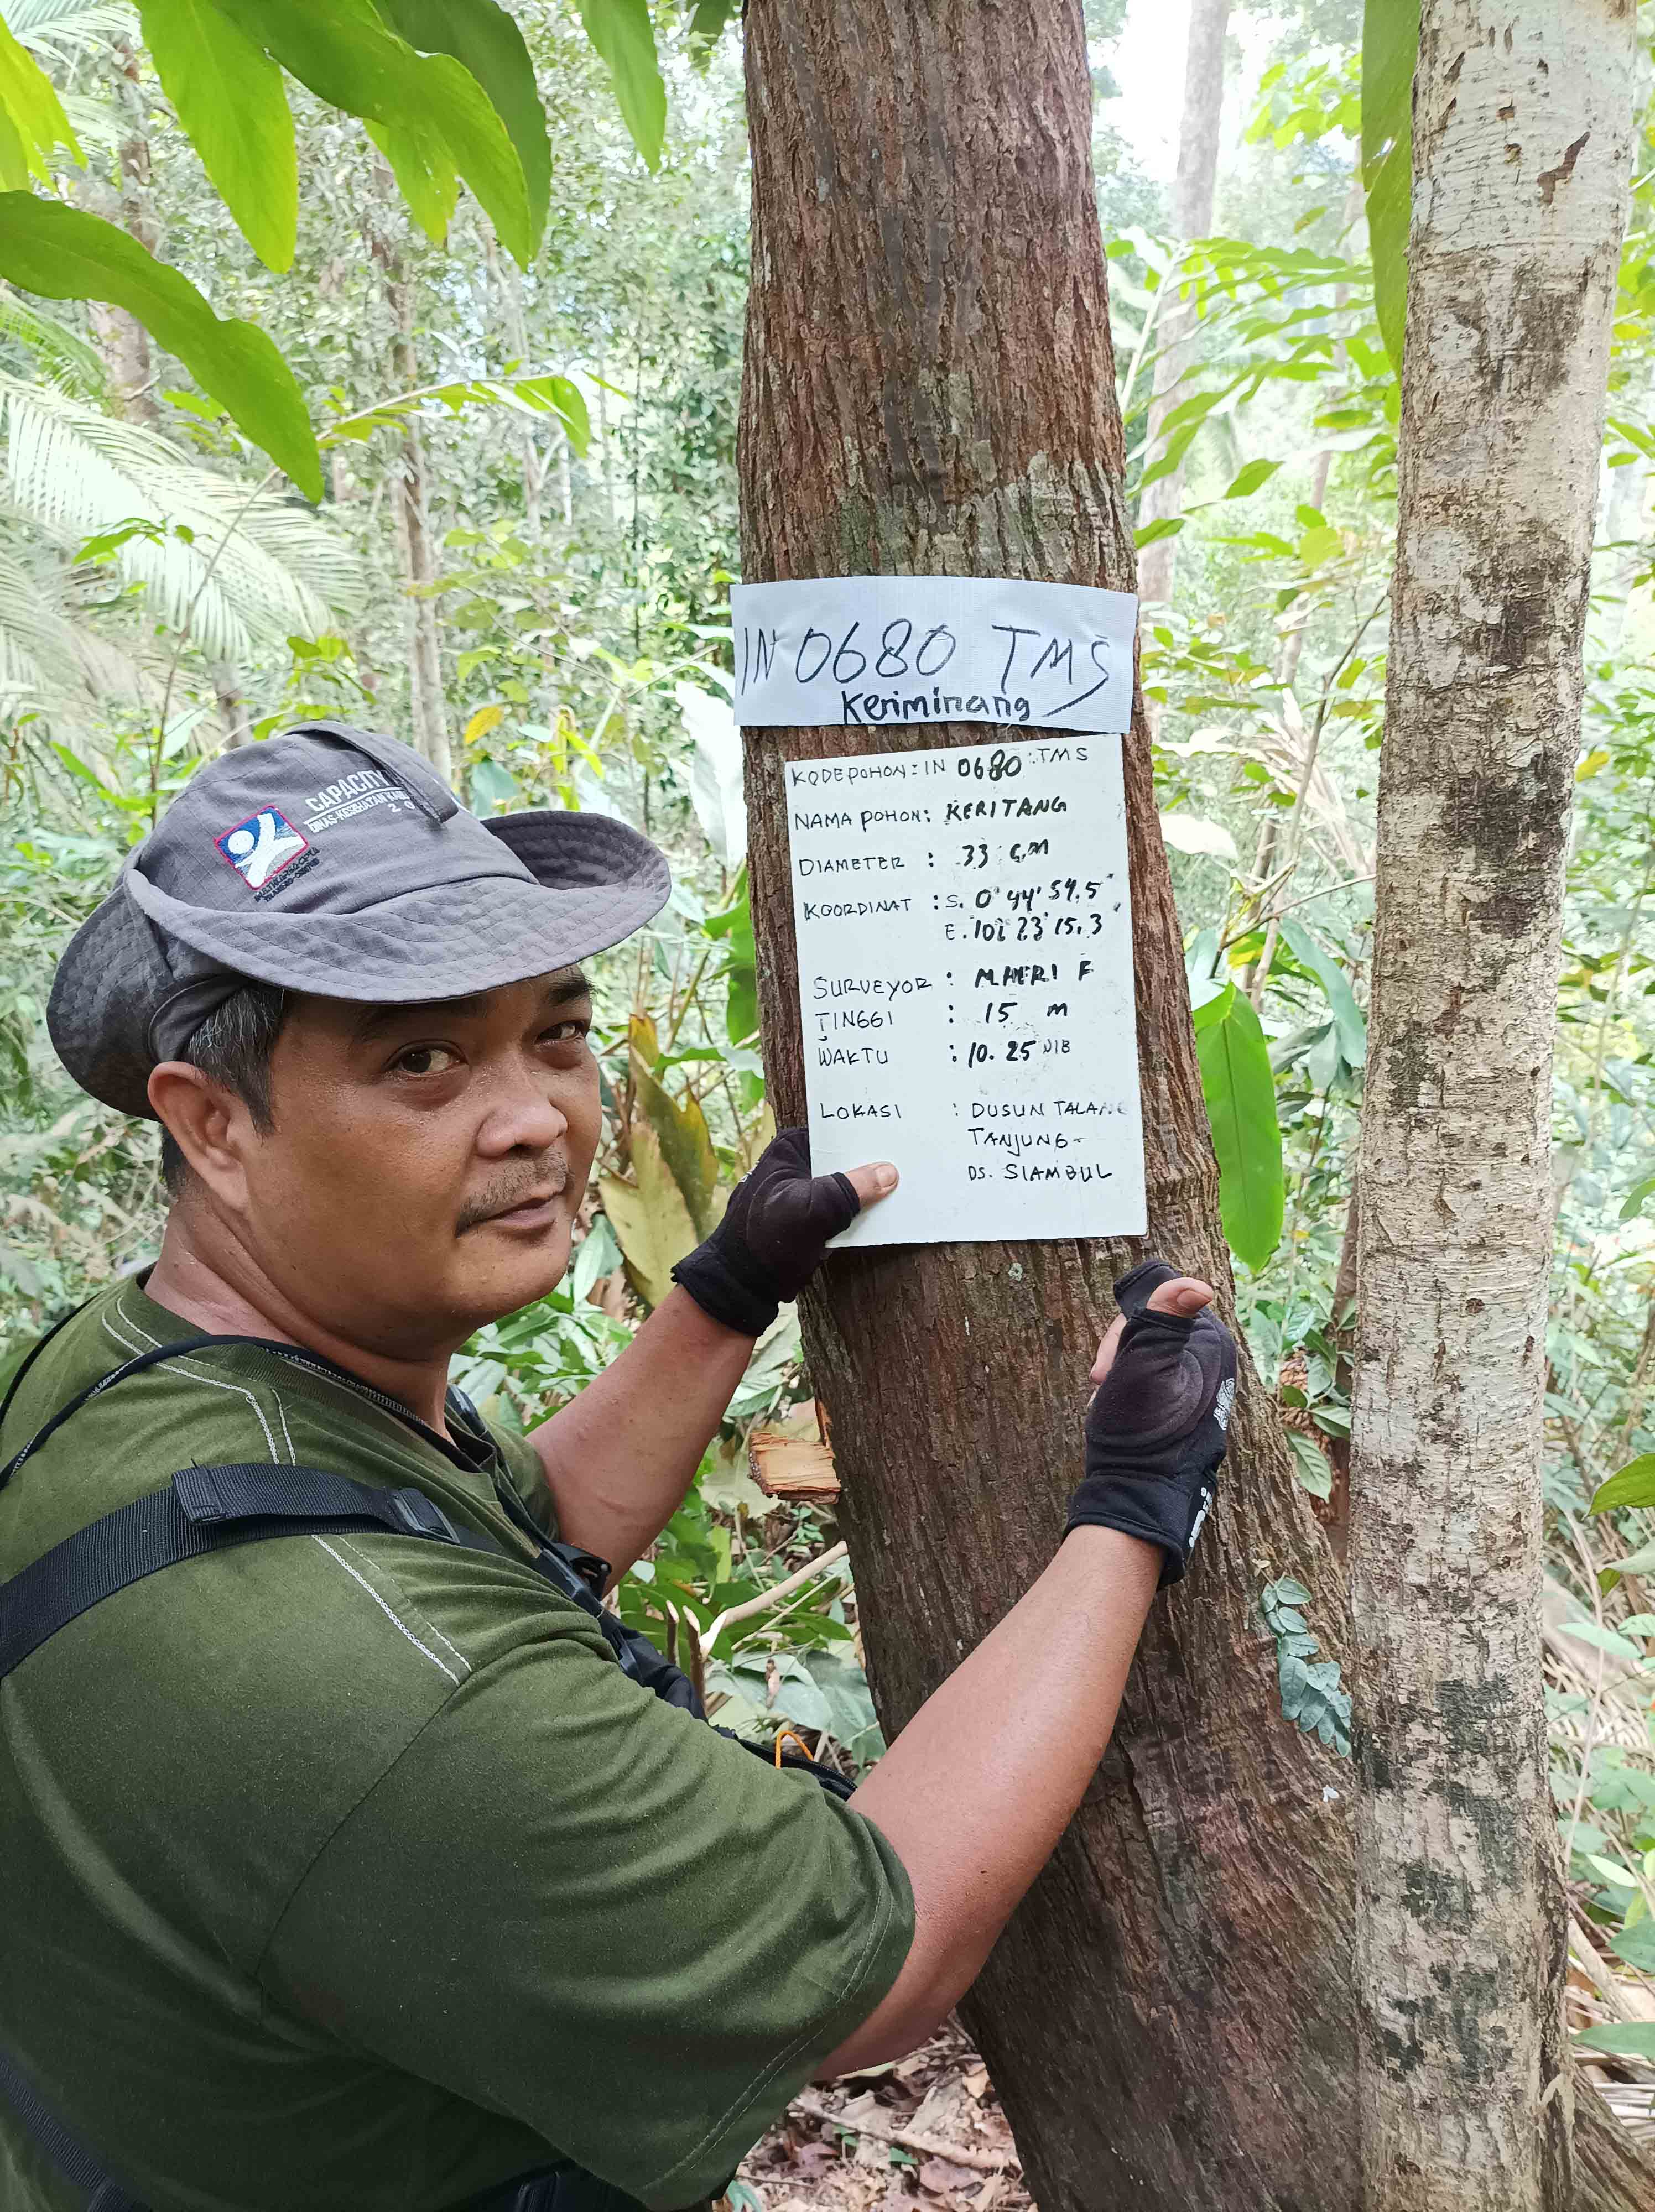 IN 0680 TMS
Keriminang
KODE POHON : IN 0680 TMS
NAMA POHON : KERITANG
DIAMETER : 33 CM
KOORDINAT : S. 0° 44' 54,5"
E. 102 23' 15,3"
SURVEYOR : M.HERI F
TINGGI : 15 M
WAKTU : 10.25 WIB
LOKASI : DUSUN TALANG
TANJUNG -
DS. SIAMBUL
CAPACITY
DINAS KESEHATAN
20